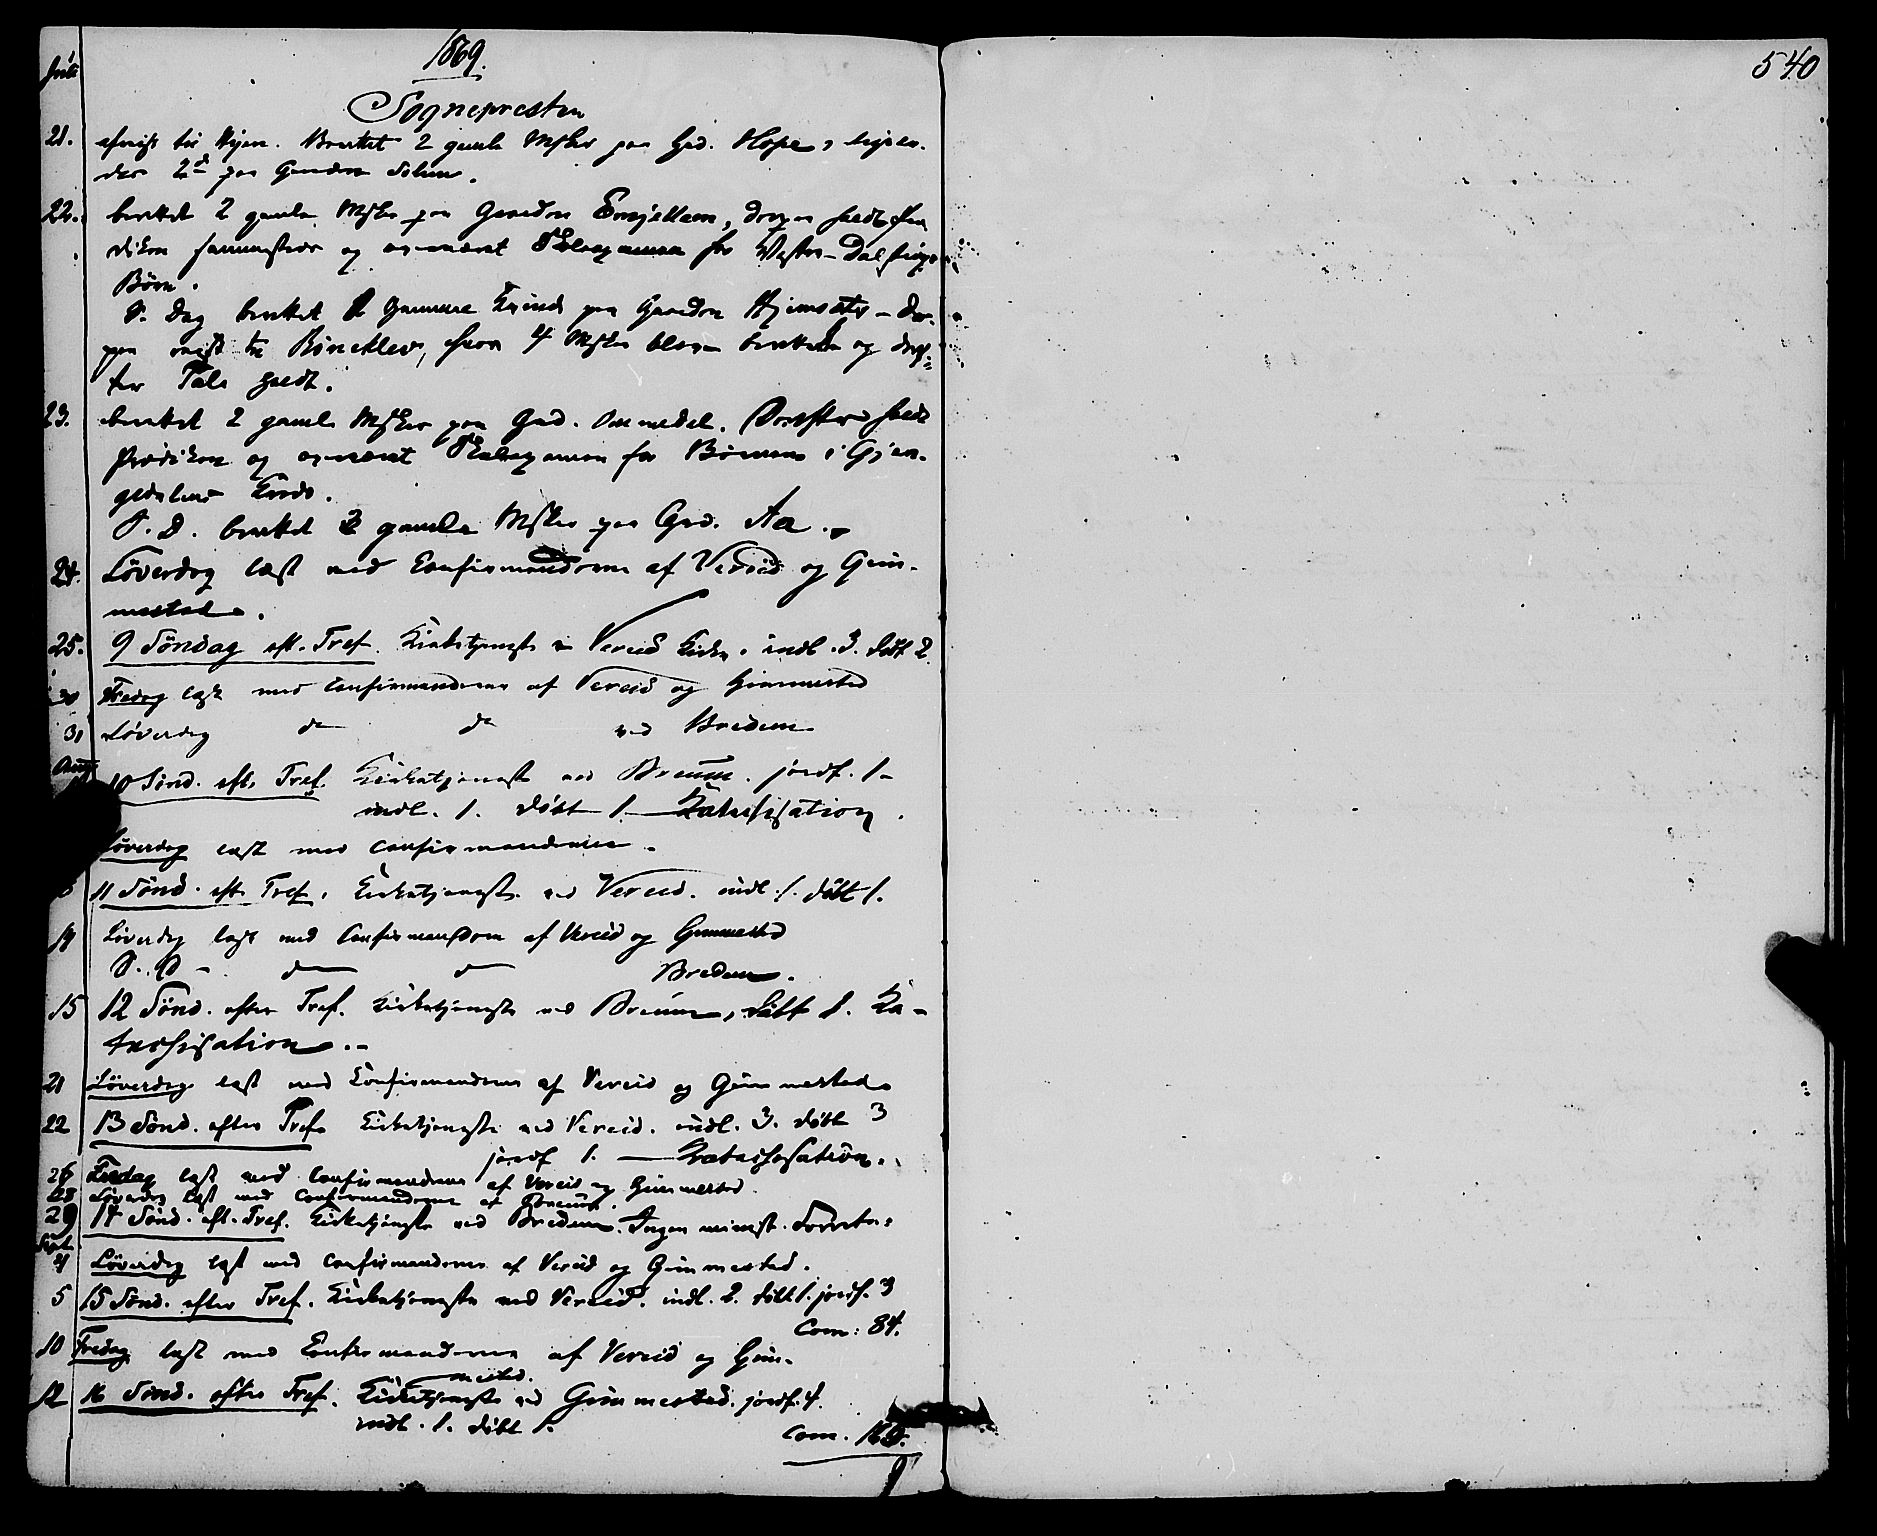 1869.
540
Juli
Sognepresten
21. afreist til Hyen. Berettet 2 gamle Msker paa Grd. Hope, ligele-
des 2de paa Gaarden Solem.
22. berettet 2 gamle Msker paa Gaarden Ensjellem, derpaa holdt Præ
diken sammesteds og Skoleexamen for
Børn.
S. Dag berettet gammel Kvinde paa Gaarden Hjemsæter - der-
paa reist til Røneklev, hvor 4 Msker bleve berettede og
Tale holdt.
23. berettet 2 gamle Msker paa Grd. Ommedal. Derefter holdt
Prædiken og Skoleexamen for Børnene i Gjen-
gedalens Kreds.
S. D. berettet gamle Msker paa Grd. Aa.
24. Löverdag læst med Confirmanderne af Vereid og Gim-
mestad.
25. 9 Söndag eft. Tref. Kirketjeneste ved Vereid Kirke. indl. 3. døbt 2.
30 Fredag læst med Confirmanderne af Vereid og Gimmestad
31 Löverdag do do ved Bredem
Aug
10 Sönd. eft. Tref. Kirketjeneste ved Breum. jordf. 1-
indl. 1. døbt 1. Katechisation.
Löverdag læst med Confirmanderne.
8 11 Sönd. eft. Tref. Kirketjeneste ved Vereid. indl. 1. døbt 1.
14 Löverdag læst med Confirmanderne af Vereid og Gimmestad
S. D - do do Bredem.
15 12 Sönd. efter Tref. Kirketjeneste ved Breum, døbt 1. Ka-
techisation.-
21 Löverdag læst med Confirmanderne af Vereid og Gimmestad
22 13 Sönd. efter Tref. Kirketjeneste ved Vereid. indl. 3. døbt 3
jordf 1. - Katechisation.
26 læst med Confirmanderne af Vereid og Gimmestad.
28 Löverdag læst med Confirmanderne af Breum.
29 14 Sönd. eft. Tref. Kirketjeneste ved Bredem. Ingen minist. Forretn:
Sept.
4 Löverdag læst med Confirmanderne af Vereid og Gimmestad.
5 15 Sönd. efter Tref. Kirketjeneste ved Vereid. indl. 2. døbt 1. jordf. 3
Com: 84.
10 Fredag læst med Confirmanderne af Vereid og Gim-
mestad.
12 16 Sönd. efter Tref. Kirketjeneste ved Gimmestad. jordf. 4.
indl. 1. døbt 1.
Com. 160.